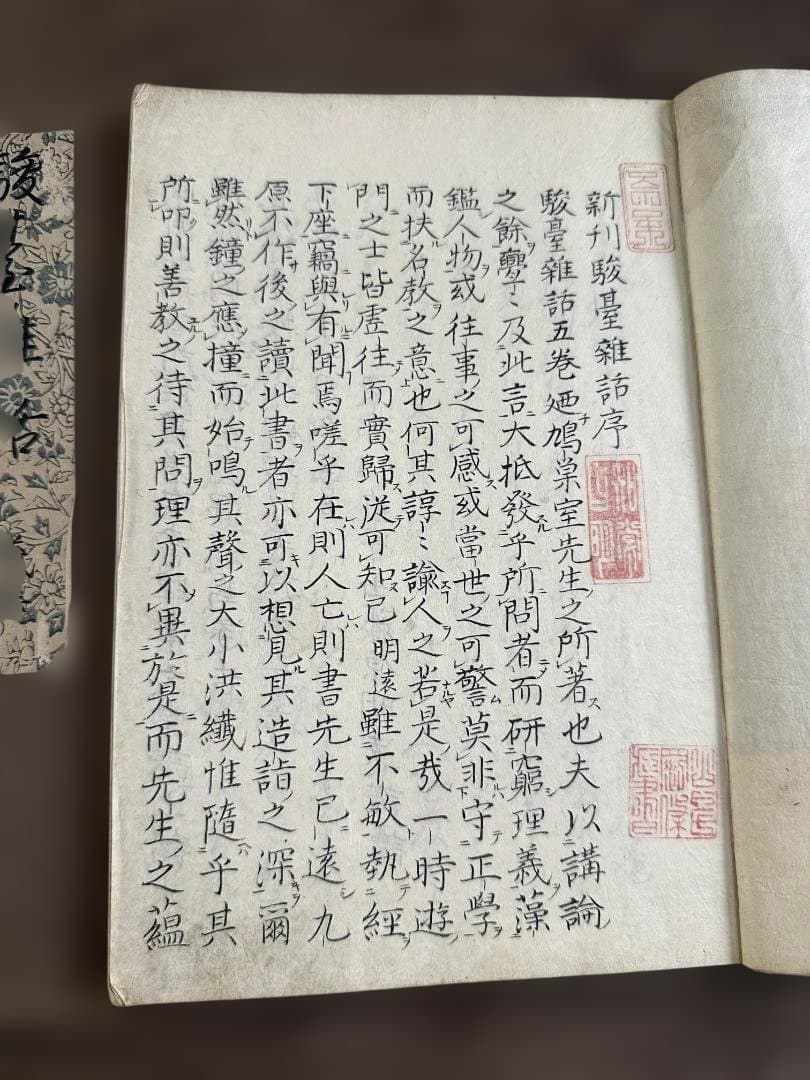 新刊駿臺雜話序
駿臺雜話五巻廼鳩巣室先生之所著也夫以講論
之餘亹〻及此言大抵發乎所問者而研窮理義藻
鑑人物或往事之可感或當世之可警莫非守正學
而扶名教之意也何其諄〻諭人之若是哉一時遊
門之士皆虚往而實歸从可知已明遠雖不敏執經
下座竊與有聞焉嗟乎在則人亡則書先生已遠九
原不作後之讀此書者亦可以想見其造詣之深爾
雖然鐘之應撞而始鳴其聲之大小洪纖惟隨乎其
所叩則善教之待其問理亦不異於是而先生之蘊
駿